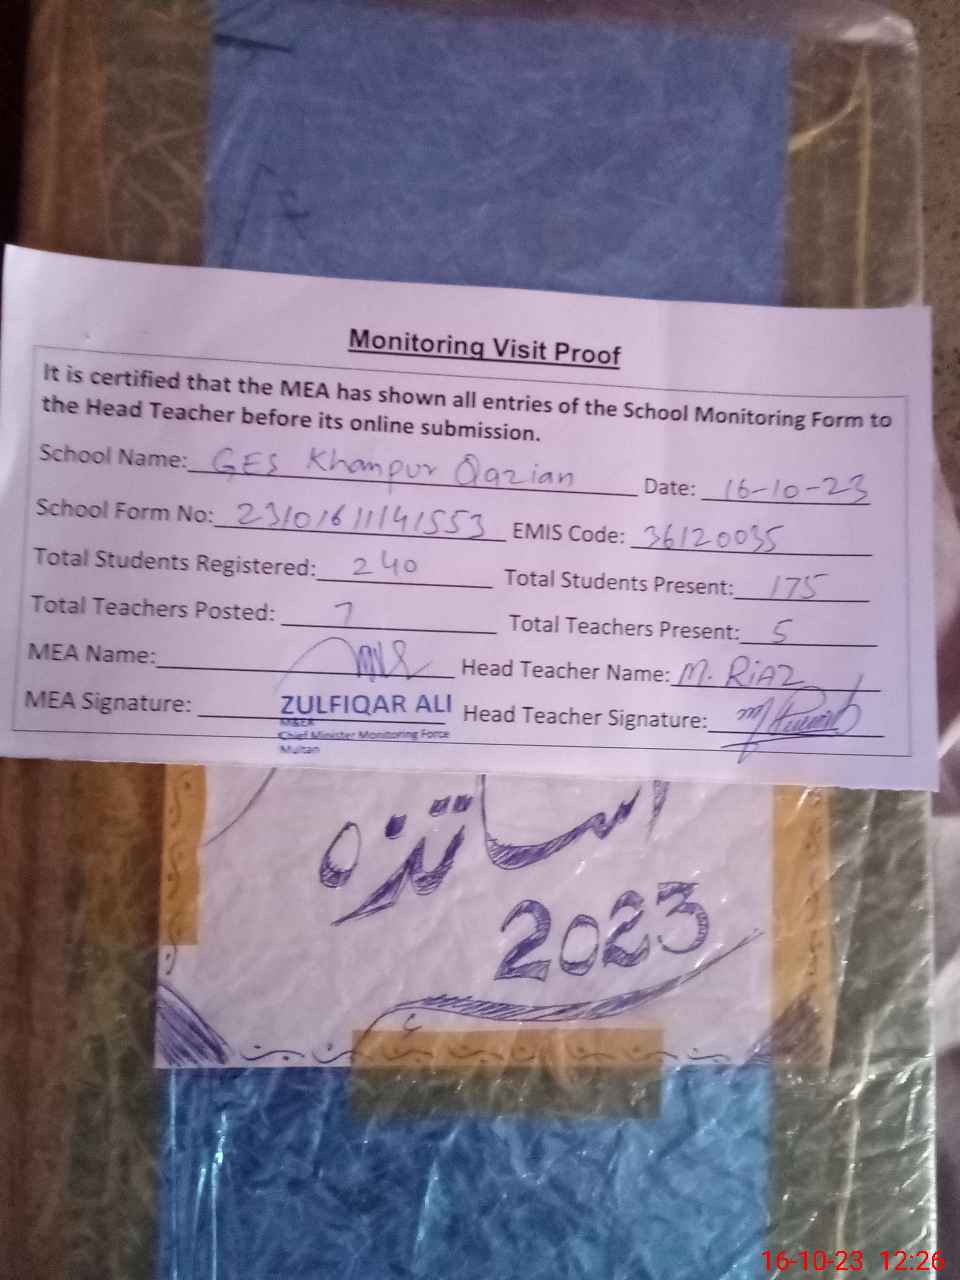 Monitoring Visit Proof
It is certified that the MEA has shown all entries of the School Monitoring Form to
the Head Teacher before its online submission.
School Name: GES Khanpur Qazian Date: 16-10-23
School Form No: 23101611141553 EMIS Code: 36120035
Total Students Registered: 240 Total Students Present: 175
Total Teachers Posted: 7 Total Teachers Present: 5
MEA Name: Head Teacher Name: M. RiAZ
MEA Signature: ZULFIQAR ALI Head Teacher Signature:
M&EA
Chief Minister Monitoring Force
Multan
اساتزہ
2023
16-10-23 12:26